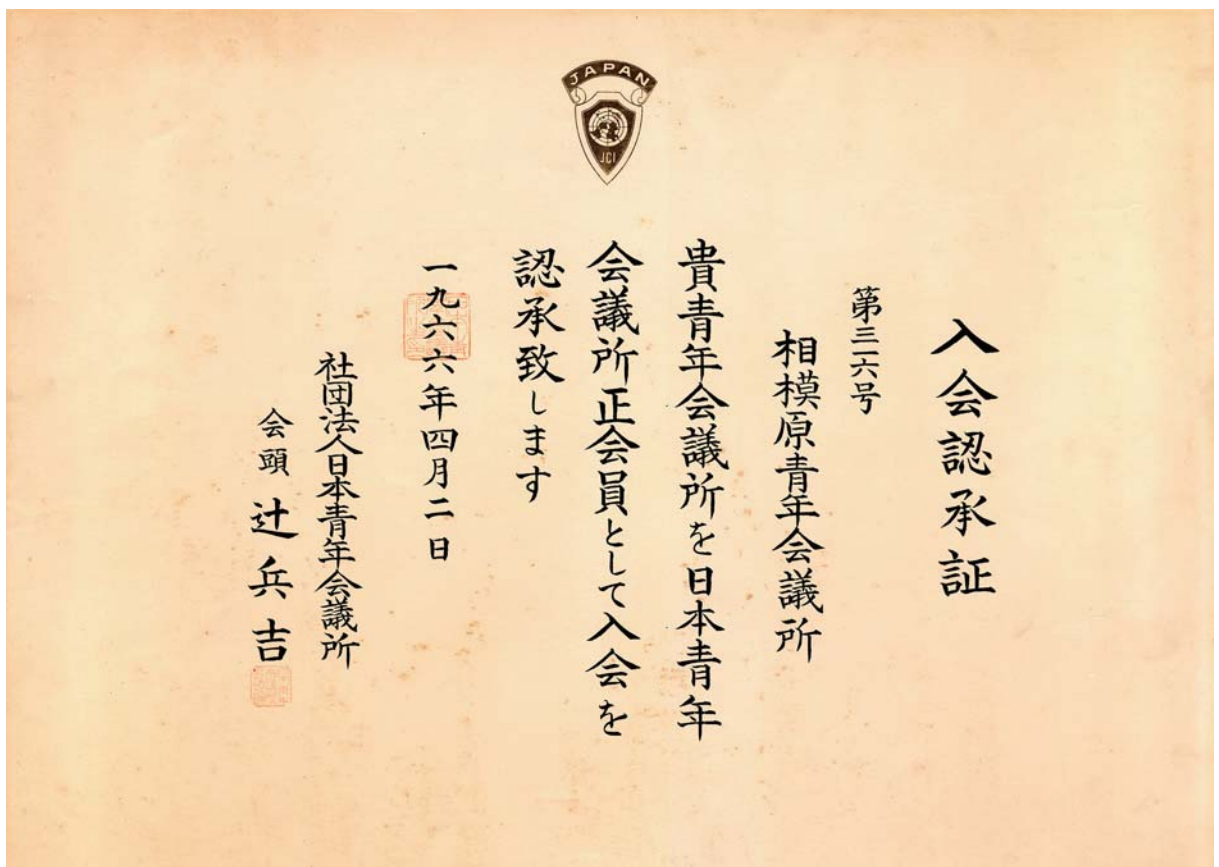 JAPAN
JCI
入会認承証
第三一六号
相模原青年会議所
貴青年会議所を日本青年
会議所正会員として入会を
認承致します
一九六六年四月二日
社団法人日本青年会議所
会頭 辻兵吉